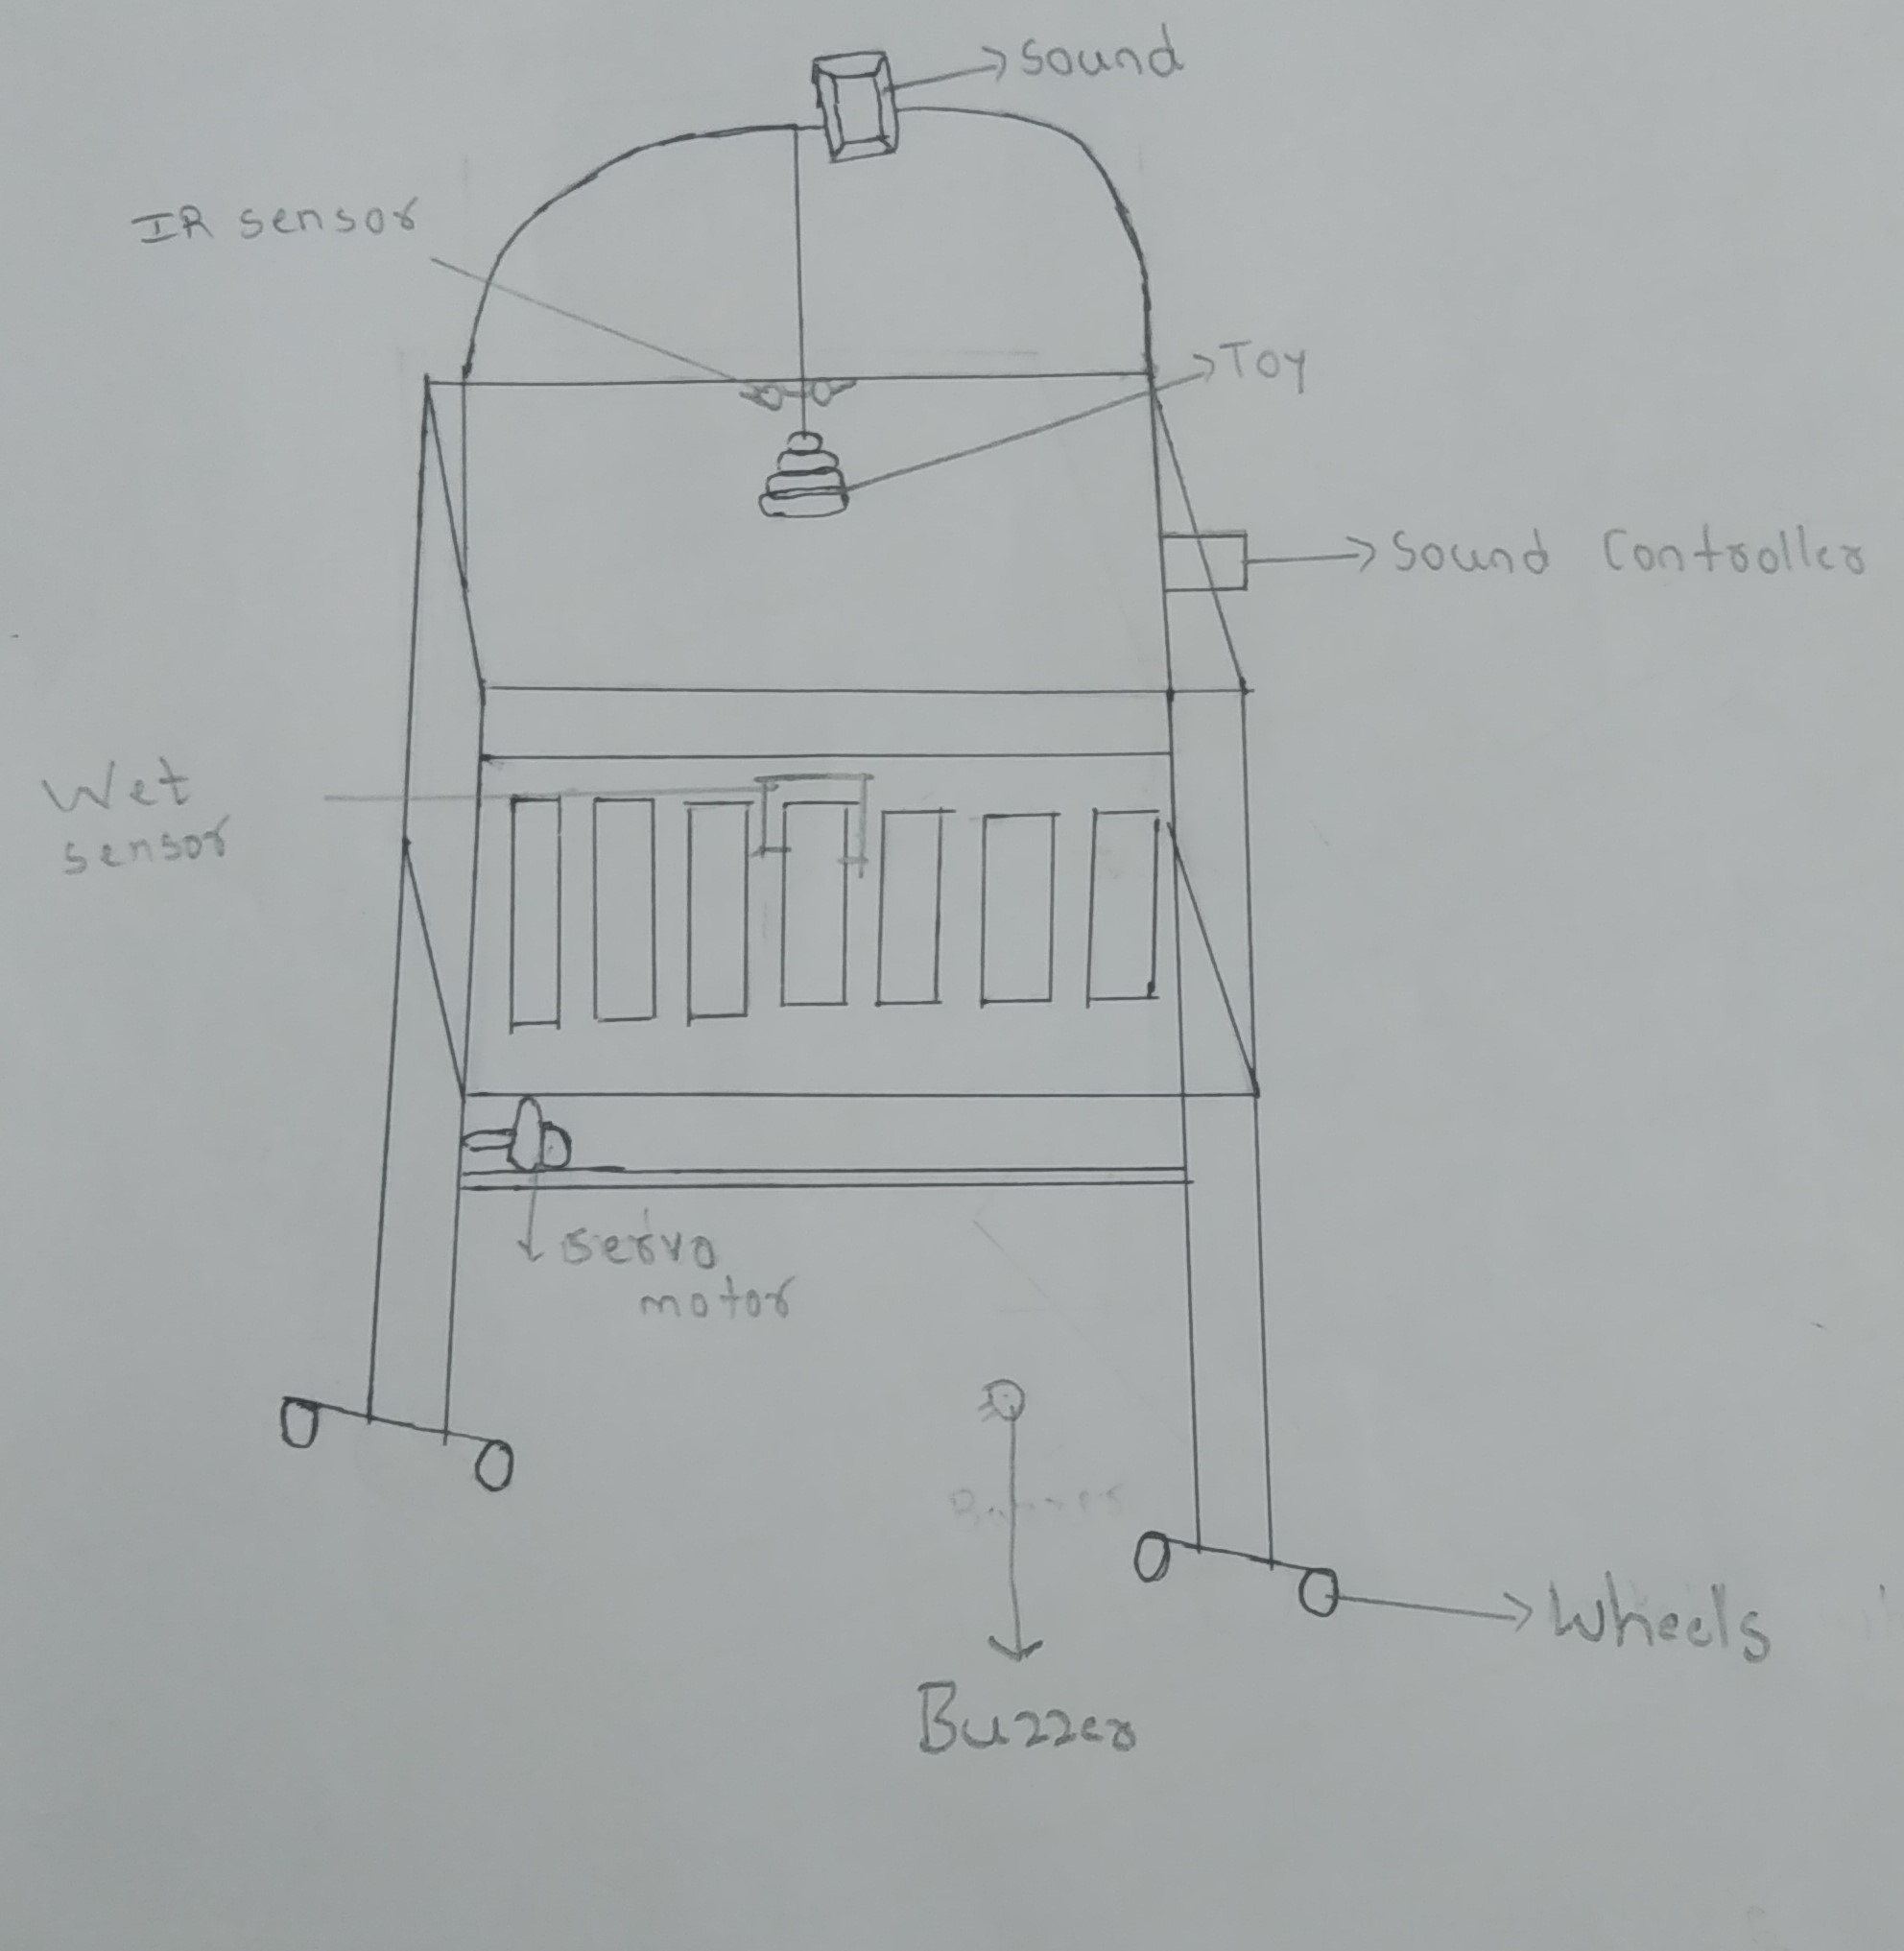 Sound
IR sensor
Toy
Sound Controller
Wet
sensor
servo
motor
Wheels
Buzzer